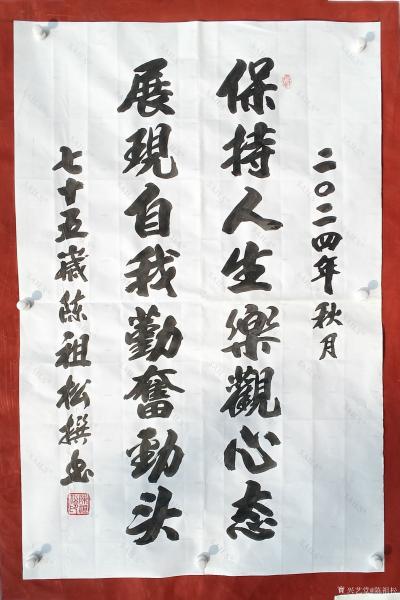 二〇二四年秋月
保持人生樂觀心态
展現自我勤奮勁头
七十五歲陈祖松撰书
兴艺堂@陈祖松